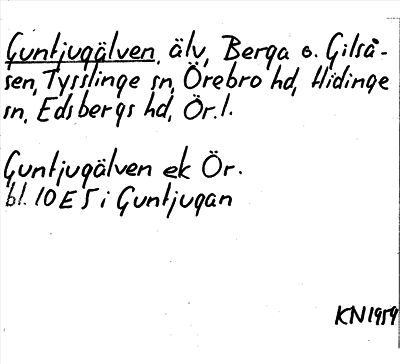 Guntjugälven, älv, Berga o. Gilså-
sen, Tysslinge sn, Örebro hd, Hidinge
sn, Edsbergs hd, Ör. l.
Guntjugälven ek Ör.
bl. 10 E 5 i Guntjugan
KN 1959